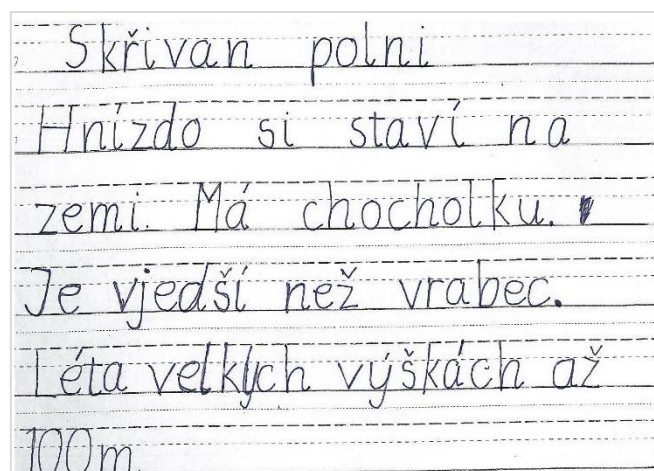 Skřivan polni
Hnízdo si staví na
zemi. Má chocholku.
Je vjedší než vrabec.
Léta velklych výškách až
100m.